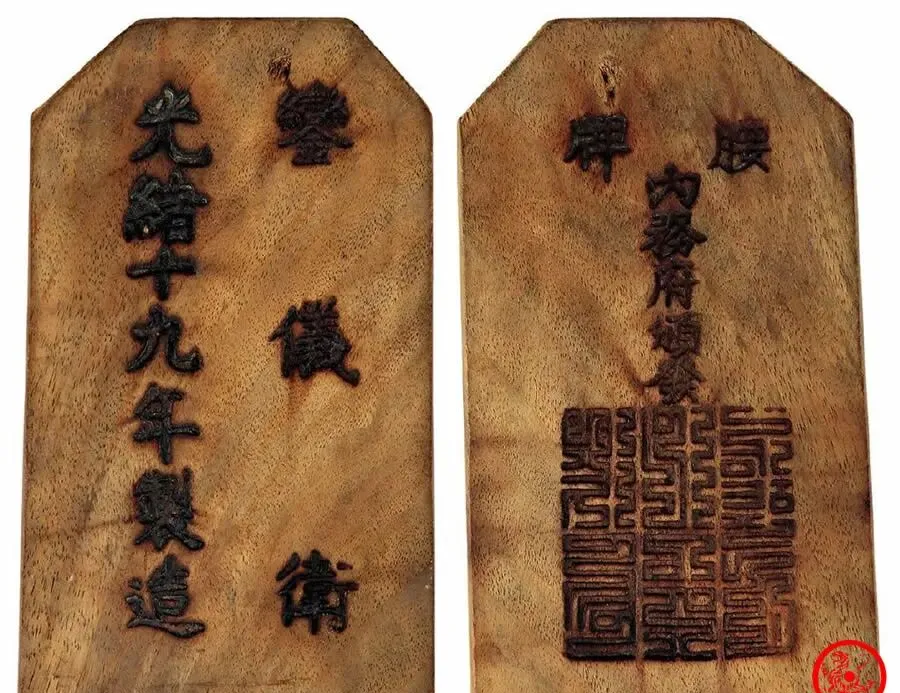 鑾儀衛
光緒十九年製造
腰牌
內務府頒發